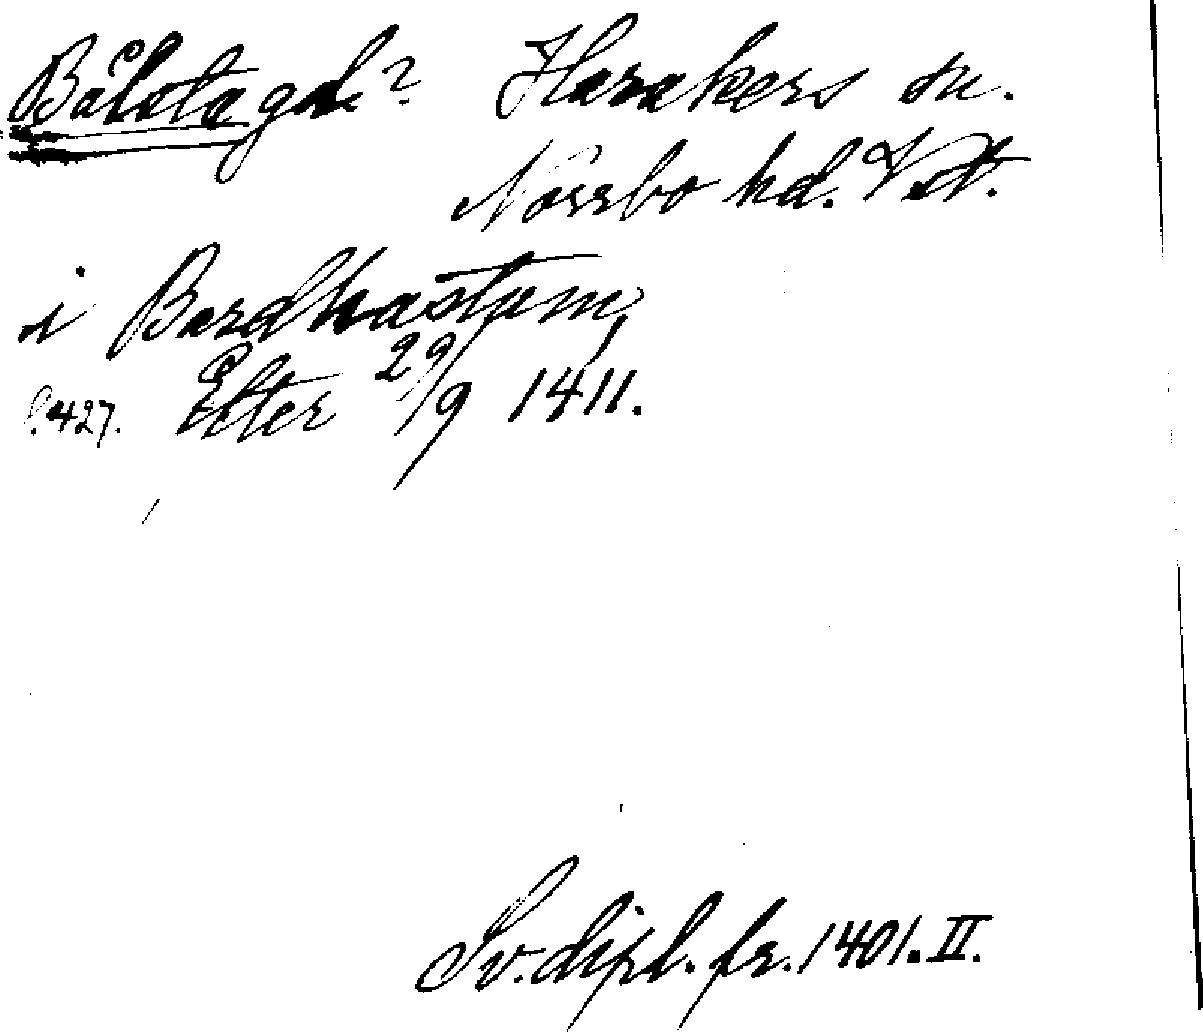 Bålsta gd.? Harakers sn.
Norrbo hd. Vstm.
i Bardhastum,
S.427. Efter 29/9 1411.
Sv. dipl. fr. 1401. II.